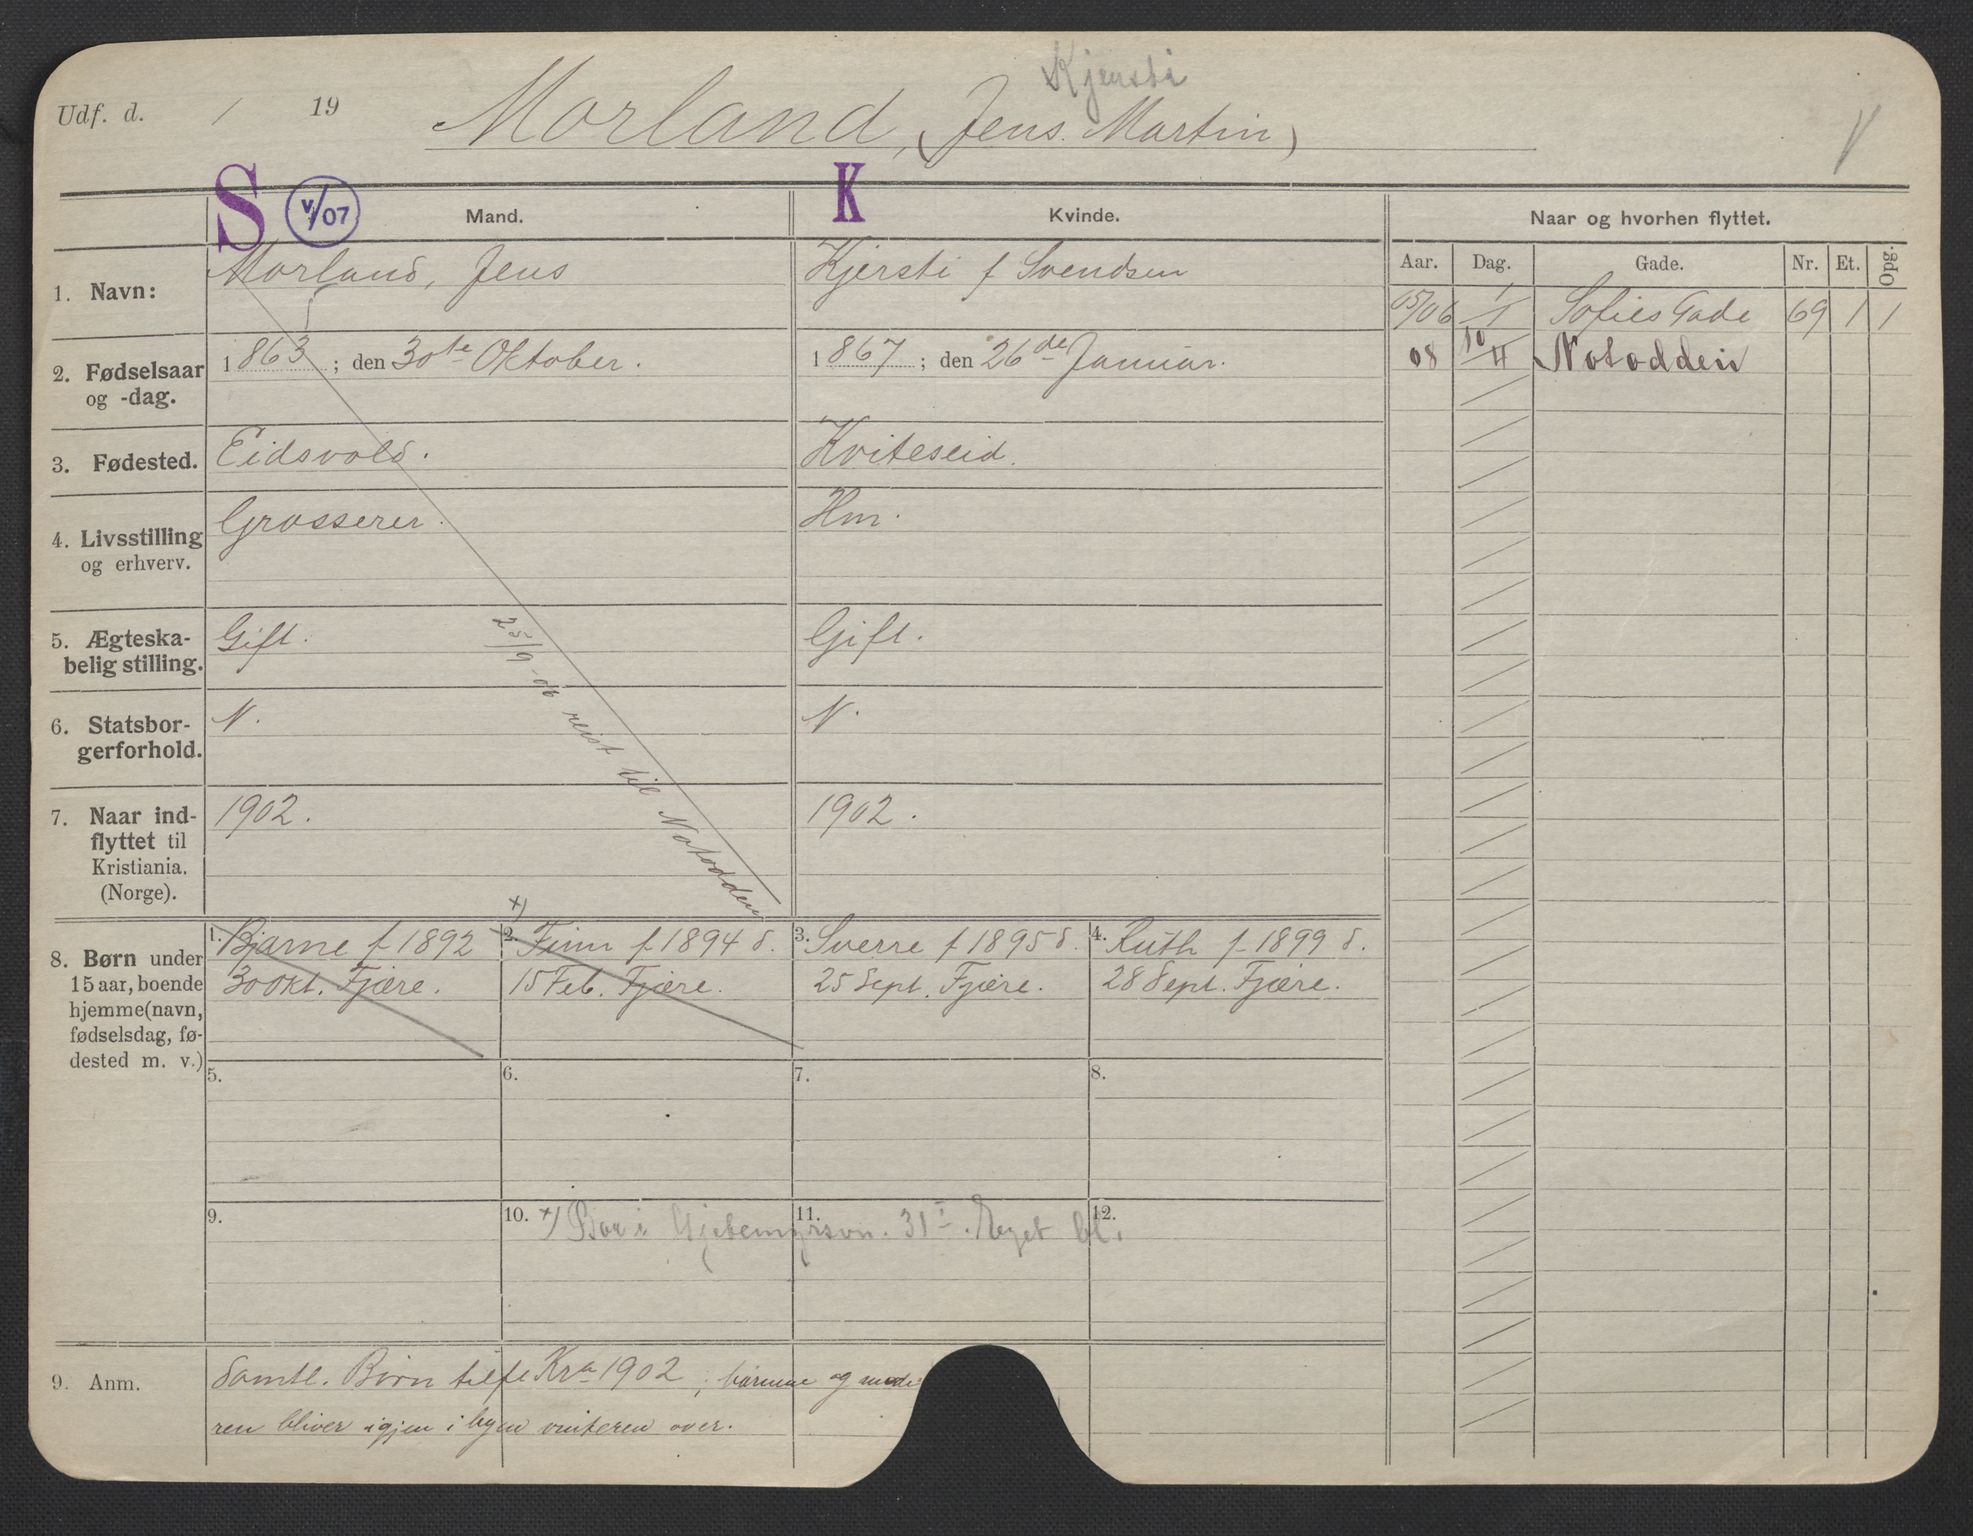 Kjersti
Udf. d. / 19 Morland, (Jens Martin)
S V/07 Mand. K Kvinde. Naar og hvorhen flyttet.
Aar. Dag. Gade. Nr. Et. Opg.
1. Navn: Morland, Jens Kjersti f Svendsen
05/06 1/1 Sofies Gade 69 1 1
2. Fødselsaar og -dag. 1863; den 30te Oktober. 1867; den 26de Januar.
08 10/4 Notodden
3. Fødested. Eidsvold. Kviteseid.
4. Livsstilling og erhverv. Grosserer. Hm.
5. Ægteska-
belig stilling. Gift. Gift.
6. Statsbor-
gerforhold. N. N.
25/9-06 reist til Notodden
7. Naar ind-
flyttet til
Kristiania.
(Norge). 1902. 1902.
8. Børn under
15 aar, boende
hjemme (navn,
fødselsdag, fø-
dested m. v.)
1. Bjarne f 1892
30 Okt. Fjære.
x)
2. Finn f. 1894 d.
15 Feb. Fjære.
3. Sverre f 1895 d.
25 Sept. Fjære.
4. Ruth f. 1899 d.
28 Sept. Fjære.
5. 6. 7. 8.
9. 10. 11. 12.
x) Bor i Gjetemyrsvn. 31 I. Eget bl.
9. Anm. Samtl. Børn tilfl Kra 1902; børnene og mode
ren bliver igjen i byen vinteren over.